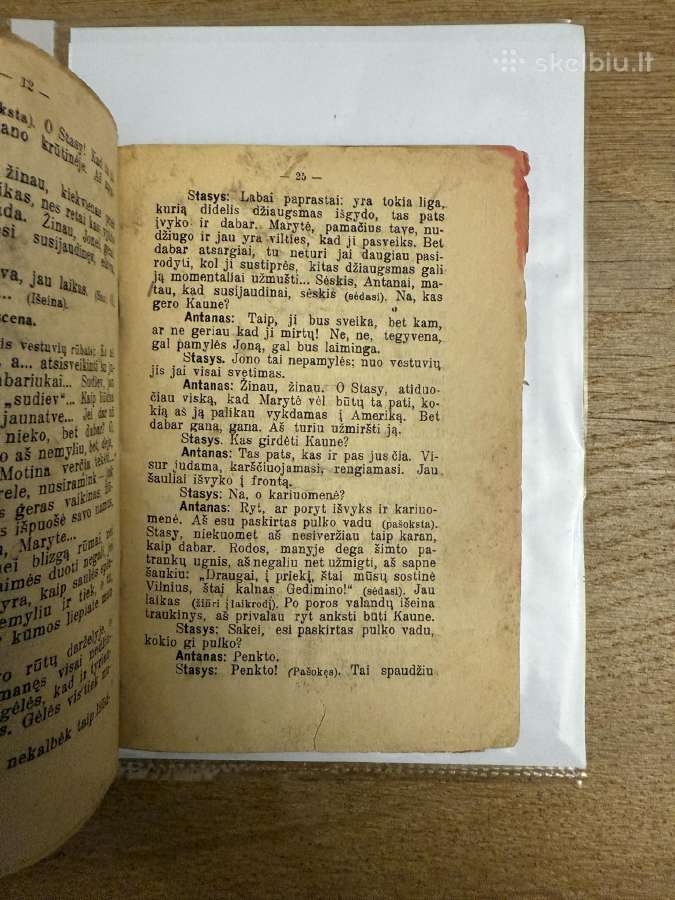 skelbiu.lt
— 12 —
O Stasy! Kad
krūtinėje. Aš
žinau, kiekvienas
nes retai kas
Žinau, Joneli,
susijaudinęs,
jau laikas.
... (Išeina).
scena.
vestuvių rūbais:
a... atsisveikinti
Sudiev,
„sudiev“... Kaip
jaunatve... Jei dar
nieko, bet dabar?
o aš nemyliu, bet
Motina verčia tekėti...
nusiramink
geras vaikinas.
išpuošė savo namus,
Maryte...
blizgą rūmai, nei
duoti negali,
yra, kaip saulės
nemyliu ir tiek,
kūmos liepiate man
rūtų darželyje,
manęs visai
gėlės, kad ir
s. Gėlės vis tiek
nekalbėk taip
— 25 —
Stasys: Labai paprastai: yra tokia liga,
kurią didelis džiaugsmas išgydo, tas pats
įvyko ir dabar. Marytė, pamačius tave, nu-
džiugo ir jau yra vilties, kad ji pasveiks. Bet
dabar atsargiai, tu neturi jai daugiau pasi-
rodyti, kol ji sustiprės, kitas džiaugsmas gali
ją momentaliai užmušti... Sėskis, Antanai, ma-
tau, kad susijaudinai, sėskis (sėdasi). Na, kas
gero Kaune?
Antanas: Taip, ji bus sveika, bet kam,
ar ne geriau kad ji mirtų! Ne, ne, tegyvena,
gal pamylės Joną, gal bus laiminga.
Stasys. Jono tai nepamylės: nuo vestuvių
jis jai visai svetimas.
Antanas: Žinau, žinau. O Stasy, atiduo-
čiau viską, kad Marytė vėl būtų ta pati, ko-
kią aš ją palikau vykdamas į Ameriką. Bet
dabar gana, gana. Aš turiu užmiršti ją.
Stasys. Kas girdėti Kaune?
Antanas: Tas pats, kas ir pas jus čia. Vi-
sur judama, karščiuojamasi, rengiamasi. Jau
šauliai išvyko į frontą.
Stasys: Na, o kariuomenė?
Antanas: Ryt, ar poryt išvyks ir kariuo-
menė. Aš esu paskirtas pulko vadu (pašoksta).
Stasy, niekuomet aš nesiveržiau taip karan,
kaip dabar. Rodos, manyje dega šimto pa-
trankų ugnis, aš negaliu net užmigti, aš sapne
šaukiu: „Draugai, į priekį, štai mūsų sostinė
Vilnius, štai kalnas Gedimino!“ (sėdasi). Jau
laikas (žiūri į laikrodį). Po poros valandų išeina
traukinys, aš privalau ryt anksti būti Kaune.
Stasys: Sakei, esi paskirtas pulko vadu,
kokio gi pulko?
Antanas: Penkto.
Stasys: Penkto! (Pašokęs). Tai spaudžiu